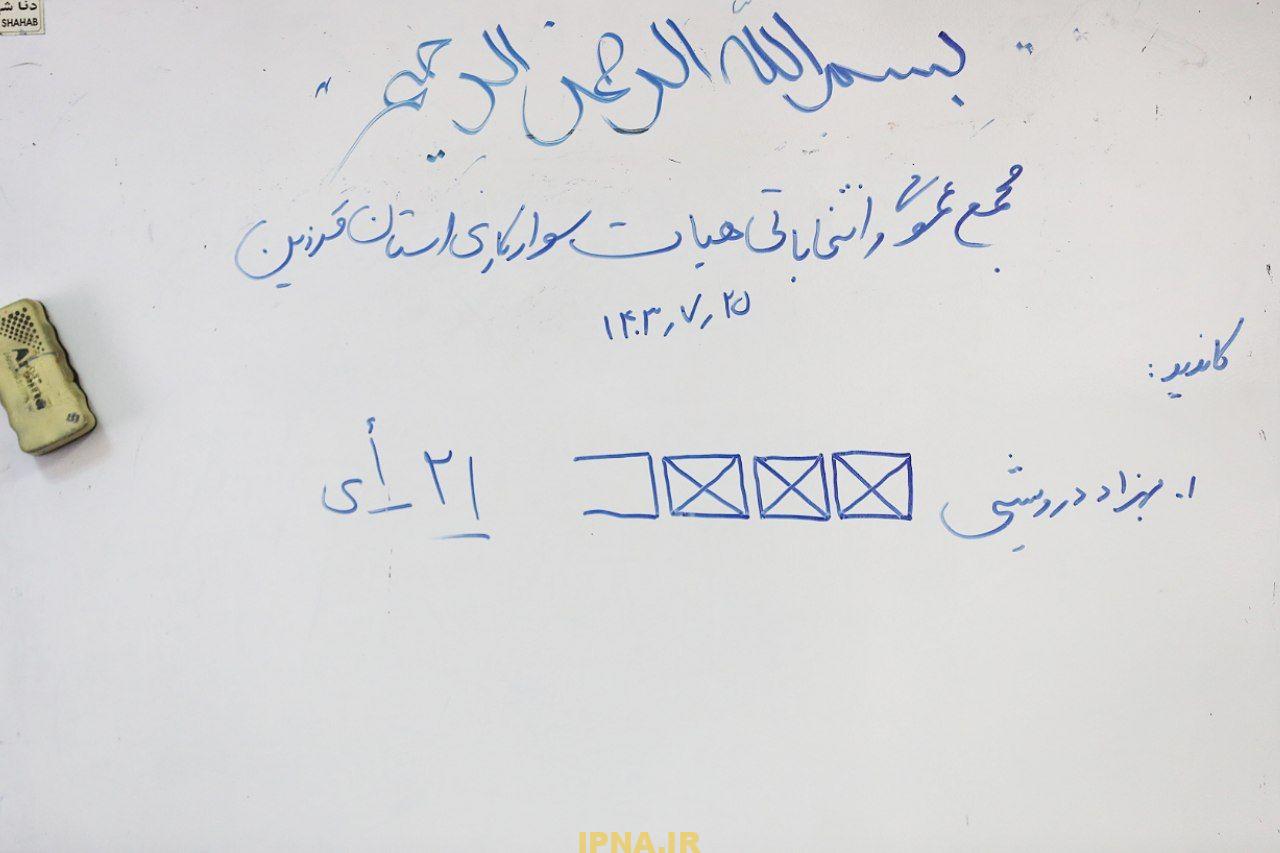 دنا ش
SHAHAB
" بسم الله الرحمن الرحیم "
مجمع عمومی و انتخاباتی هیات سوارکاری استان قزوین
۱۴۰۳٫۷٫۲۵
کاندید :
۱. بهزاد درویشی ۲۱ رأی
IPNA.IR